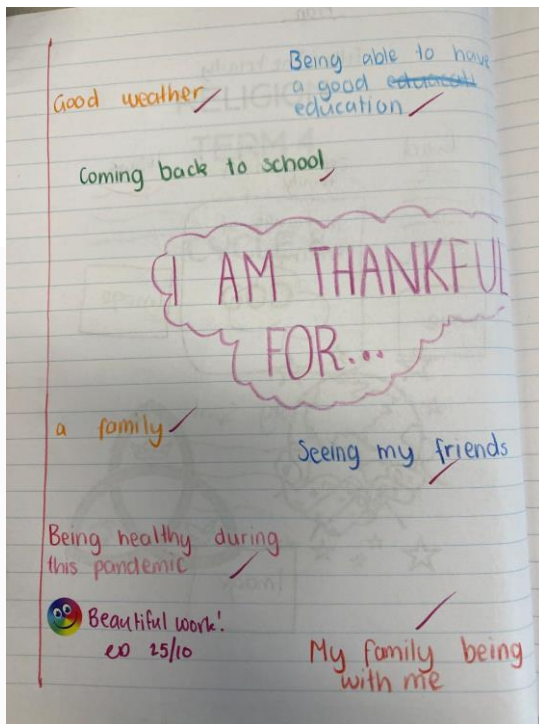 Good weather
Being able to have
a good eduacati
education
Coming back to school
I AM THANKFUL
FOR...
a family
Seeing my friends
Being healthy during
this pandemic
Beautiful work!
25/10
My family being
with me